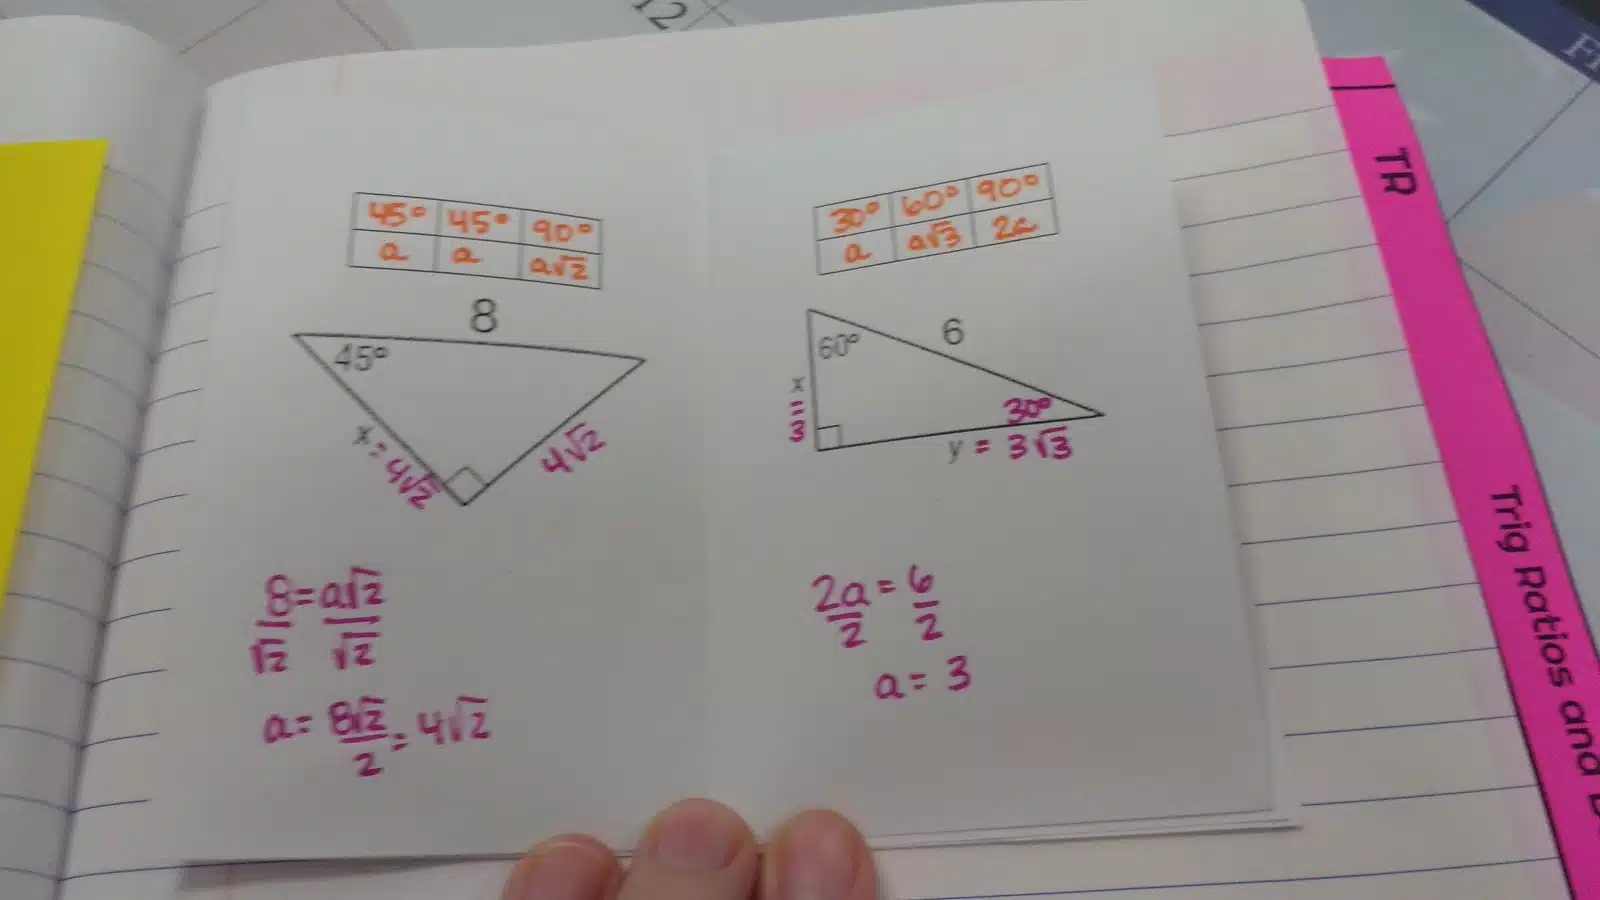 12
45° 45° 90°
a a a√2
8
45°
x = 4√2
4√2
8 = a√2
√2 √2
a = 8√2 = 4√2
2
30° 60° 90°
a a√3 2a
60°
6
x = 3
30°
y = 3√3
2a = 6
2 2
a = 3
TR
Trig Ratios and